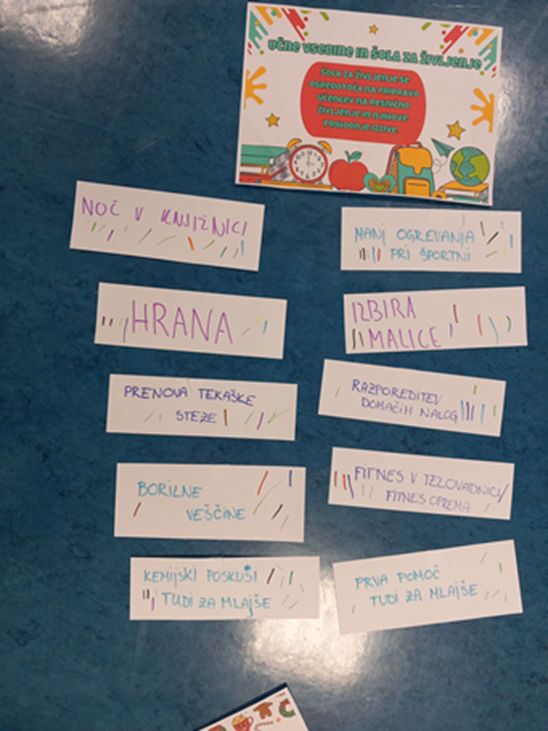 UČNE VSEBINE IN ŠOLA ZA ŽIVLJENJE
ŠOLA ZA ŽIVLJENJE SE
OSREDOTOČA NA PRIPRAVO
UČENCEV NA RESNIČNO
ŽIVLJENJE IN NJIHOVE
PRIHODNJE IZZIVE.
NOČ V KNJIŽNICI
MANJ OGREVANJA
PRI ŠPORTNI
HRANA
IZBIRA
MALICE
PRENOVA TEKAŠKE
STEZE
RAZPOREDITEV
DOMAČIH NALOG
BORILNE
VEŠČINE
FITNES V TELOVADNICI/
FITNES OPREMA
KEMIJSKI POSKUSI
TUDI ZA MLAJŠE
PRVA POMOČ
TUDI ZA MLAJŠE